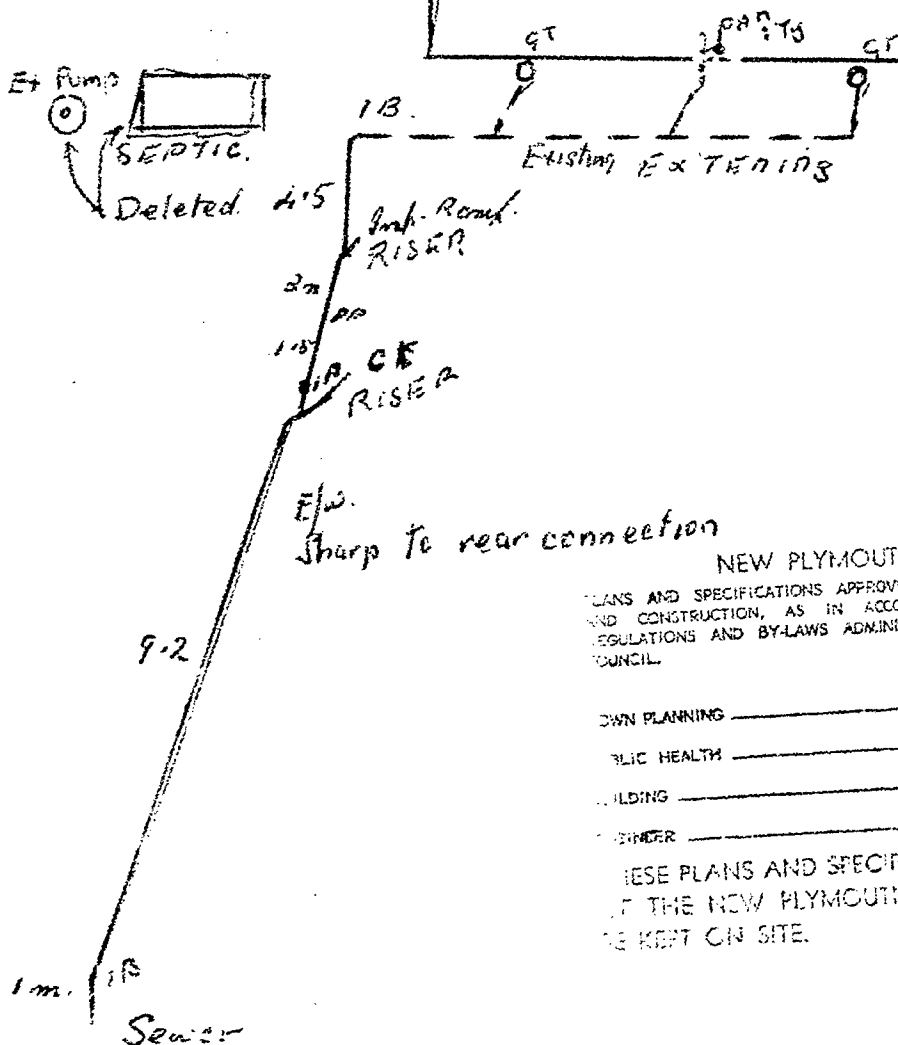 GT
GT
Ex Pump
SEPTIC.
Deleted.
1B.
Existing
4.5
RISER
2m
1.5
RISER
E/W.
Sharp to rear connection
9.2
1m.
1B
Sewer
NEW PLYMOUT
LANS AND SPECIFICATIONS APPROV
ND CONSTRUCTION, AS IN ACCO
EGULATIONS AND BY-LAWS ADMIN
OUNCIL.
OWN PLANNING
BLIC HEALTH
ILDING
GINEER
IESE PLANS AND SPECIF
THE NEW PLYMOUTH
KEPT ON SITE.